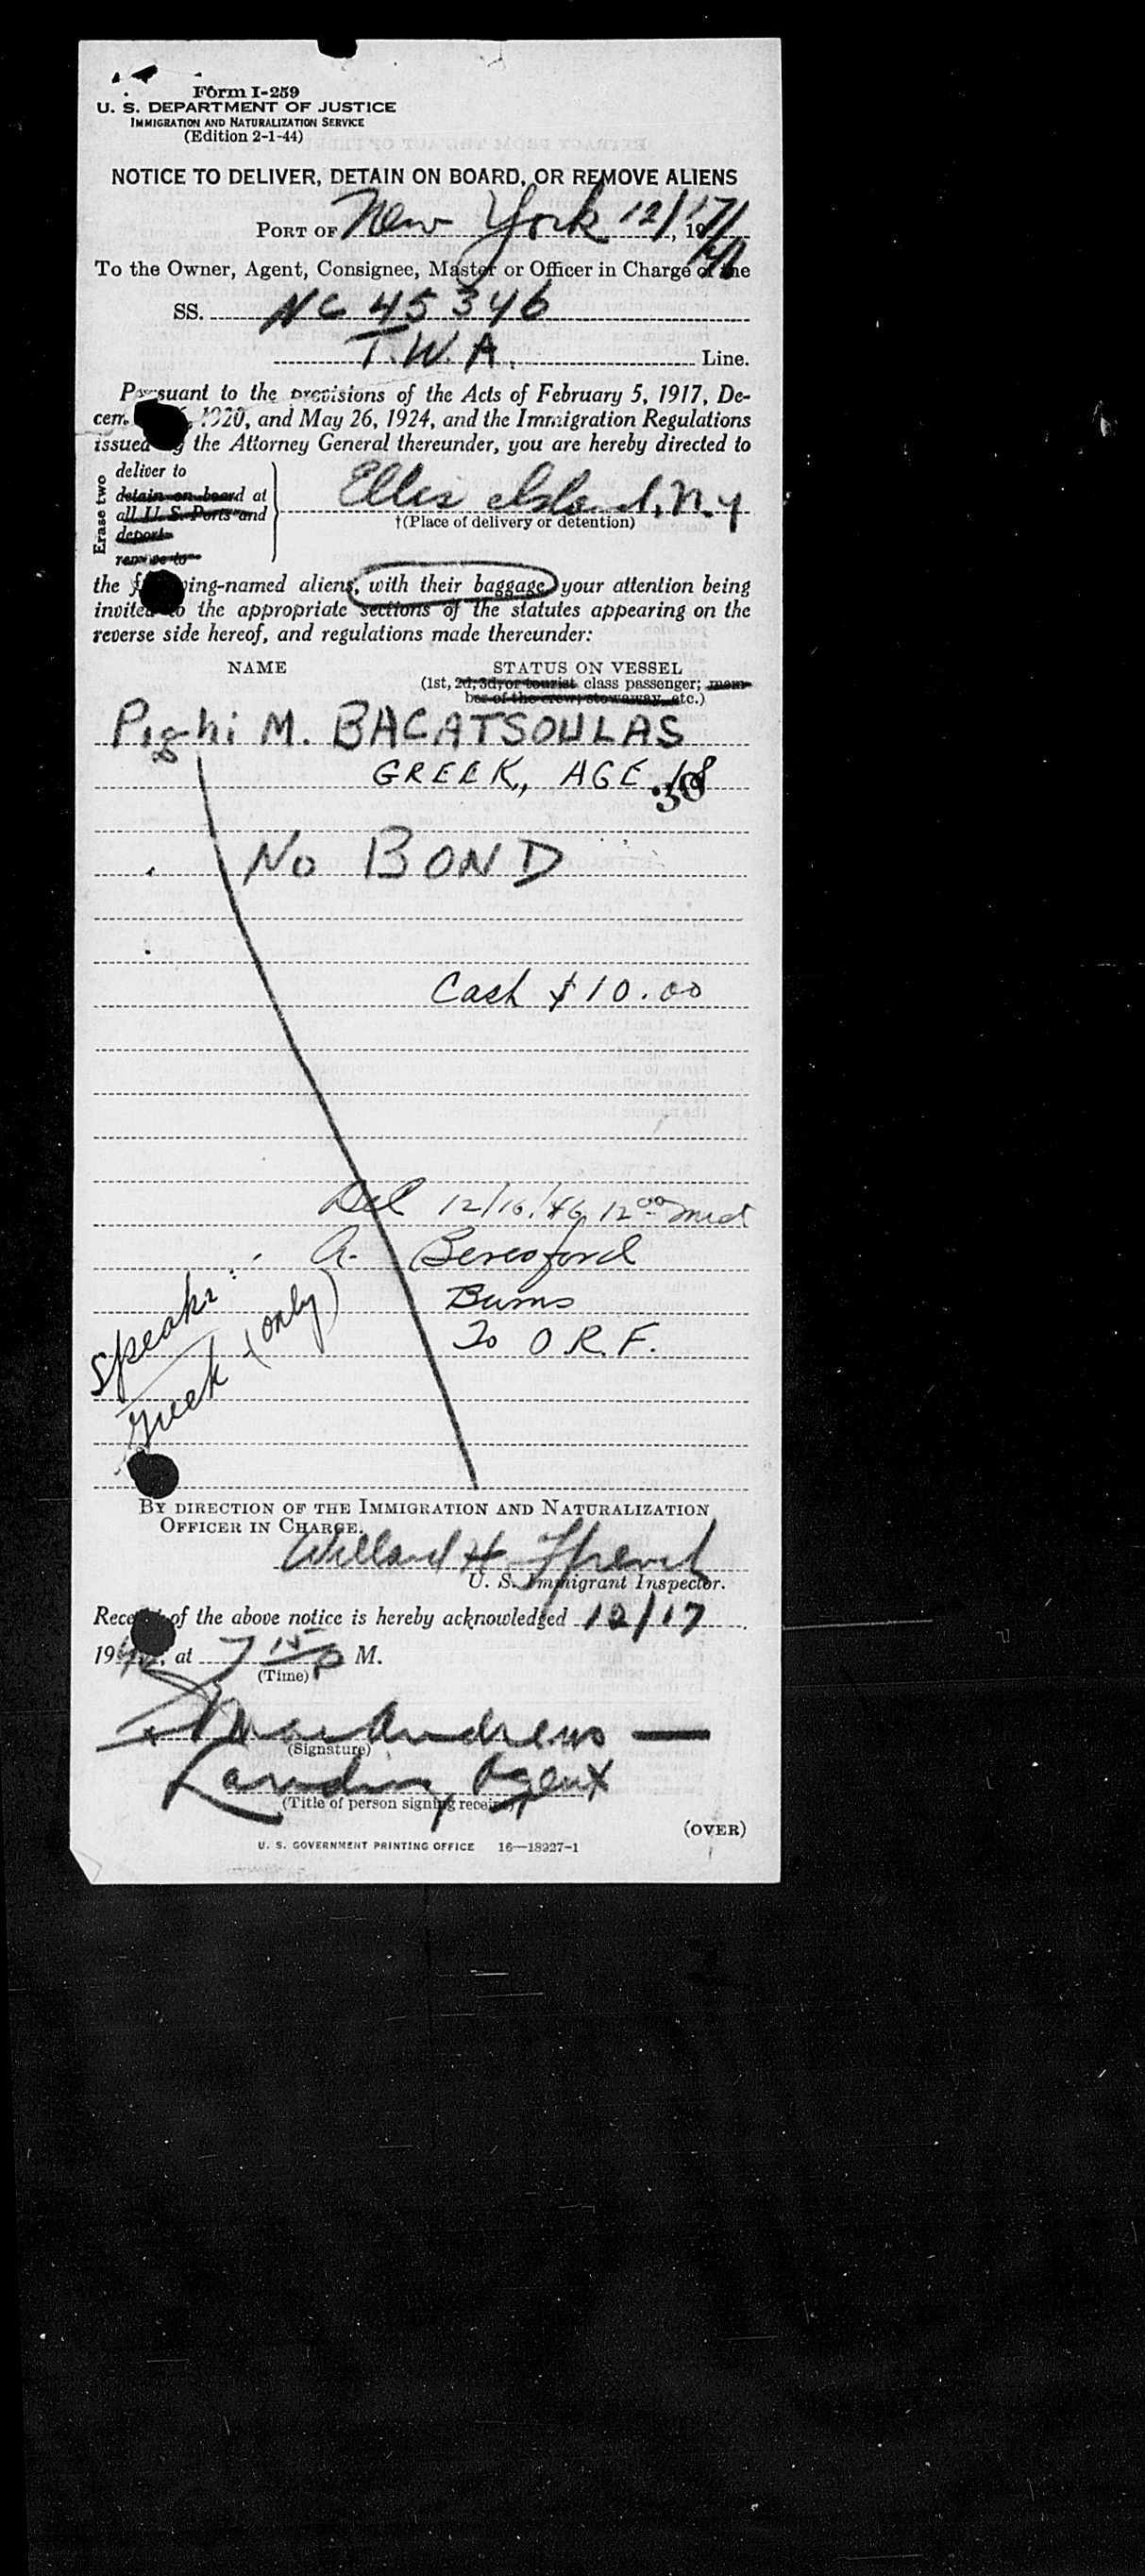 Form I-259
U. S. DEPARTMENT OF JUSTICE
IMMIGRATION AND NATURALIZATION SERVICE
(Edition 2-1-44)
NOTICE TO DELIVER, DETAIN ON BOARD, OR REMOVE ALIENS
PORT OF New York 12/17/, 19 46
To the Owner, Agent, Consignee, Master or Officer in Charge of the
SS. NC 45346
T.W.A. Line.
Pursuant to the provisions of the Acts of February 5, 1917, De-
cem 6, 1920, and May 26, 1924, and the Immigration Regulations
issued by the Attorney General thereunder, you are hereby directed to
Erase two
deliver to
detain on board at
all U. S. Ports and
deport
remove to
Ellis Island, N.Y
†(Place of delivery or detention)
the following-named aliens, with their baggage, your attention being
invited to the appropriate sections of the statutes appearing on the
reverse side hereof, and regulations made thereunder:
NAME STATUS ON VESSEL
(1st, 2d, 3d, or tourist class passenger; mem-
ber of the crew, stowaway, etc.)
Pighi M. BACATSOULAS
GREEK, AGE 18
30
No BOND
Cash $10.00
Del 12/16/46 12 00 Mid
A. Beresford
Burns
To O.R.F.
Speaks
Greek (only)
BY DIRECTION OF THE IMMIGRATION AND NATURALIZATION
OFFICER IN CHARGE.
Willard H.
U. S. Immigrant Inspector.
Receipt of the above notice is hereby acknowledged 12/17,
1946, at 7 15 P M.
(Time)
MacAndrews
(Signature)
Landing Agent
(Title of person signing receipt)
(OVER)
U. S. GOVERNMENT PRINTING OFFICE 16—18927-1